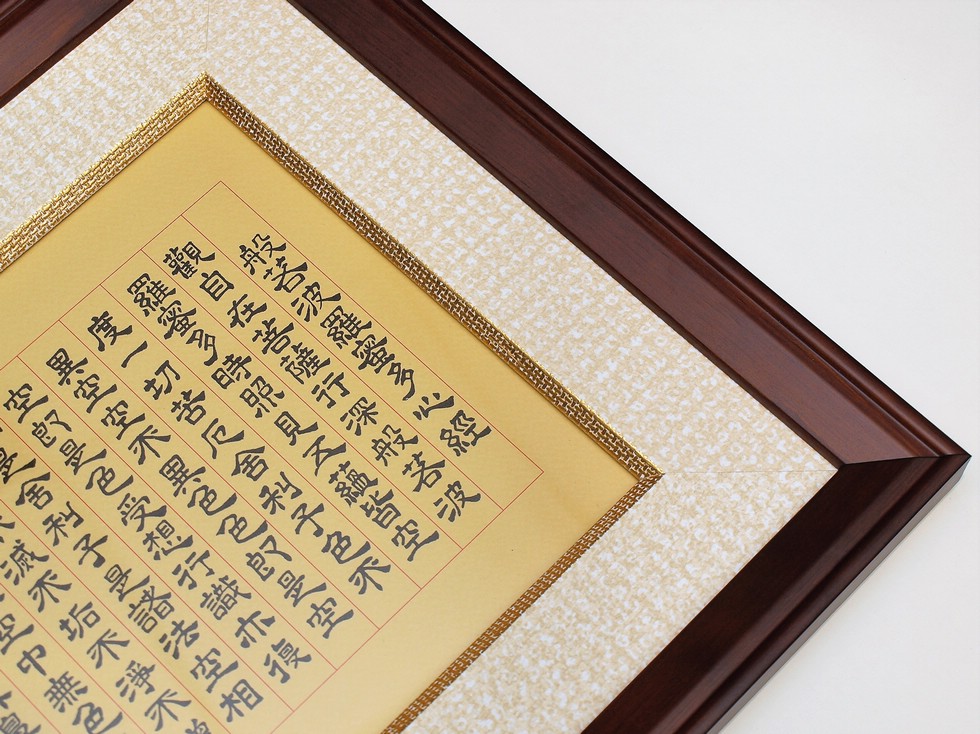 般若波羅蜜多心經
觀自在菩薩行深般若波
羅蜜多時照見五蘊皆空
度一切苦厄舍利子色不
異空空不異色色即是空
空即是色受想行識亦復
是舍利子是諸法空相
滅不垢不淨不
空中無色